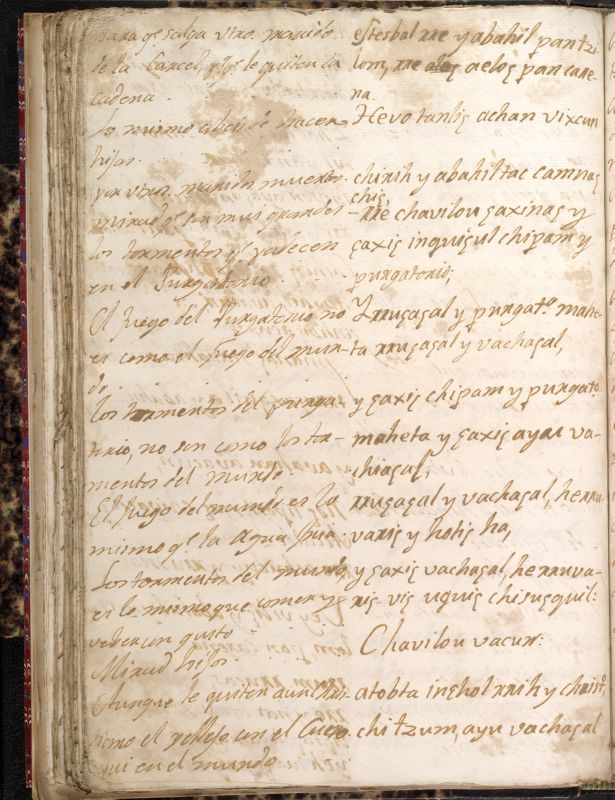 para q̃ salga vtro. marido
de la Carcel, y q̃ le quiten la
cadena.
Lo mismo abeis de hacer
hijos.
por vtros. maridos muertos.
mirad q̃ son mui grandes
los tormentos q̃ padecen
en el Purgatorio.
El fuego del Purgatorio no
es como el fuego del mun-
do.
los tormentos del purga-
torio, no son como los tor-
mentos del mundo.
El fuego del mundo es lo
mismo q̃ la agua fria.
Los tormentos del mundo
es lo mismo que comer y
veber con gusto
Mirad hijos.
Aunque le quiten a un Chris-
tiano el pellejo con el Cuero
aqui en el mundo
y abahil pantzi
lom, pan care
na.
Hevo tanliȝ achan vixcun
chirih y abahil tac camnaȝ
chiȝ
chavilou ȝaxinaȝ y
ȝaxiȝ inquiȝul chipam y
purgatorio;
Y nuȝaȝal y purgato. mahe-
ta nuȝaȝal y vachaȝal,
y ȝaxiȝ chipam y purgato.
maheta y ȝaxiȝ ayar va-
chiaȝal,
nuȝaȝal y vachaȝal, henru-
variȝ y hotiȝ ha,
y ȝaxiȝ vachaȝal, henruva-
riȝ viȝ uquiȝ chisuȝquil:
Chavilou vacun:
atobta inȝhol rrih y christ.
chi tzum, ayu vachaȝal